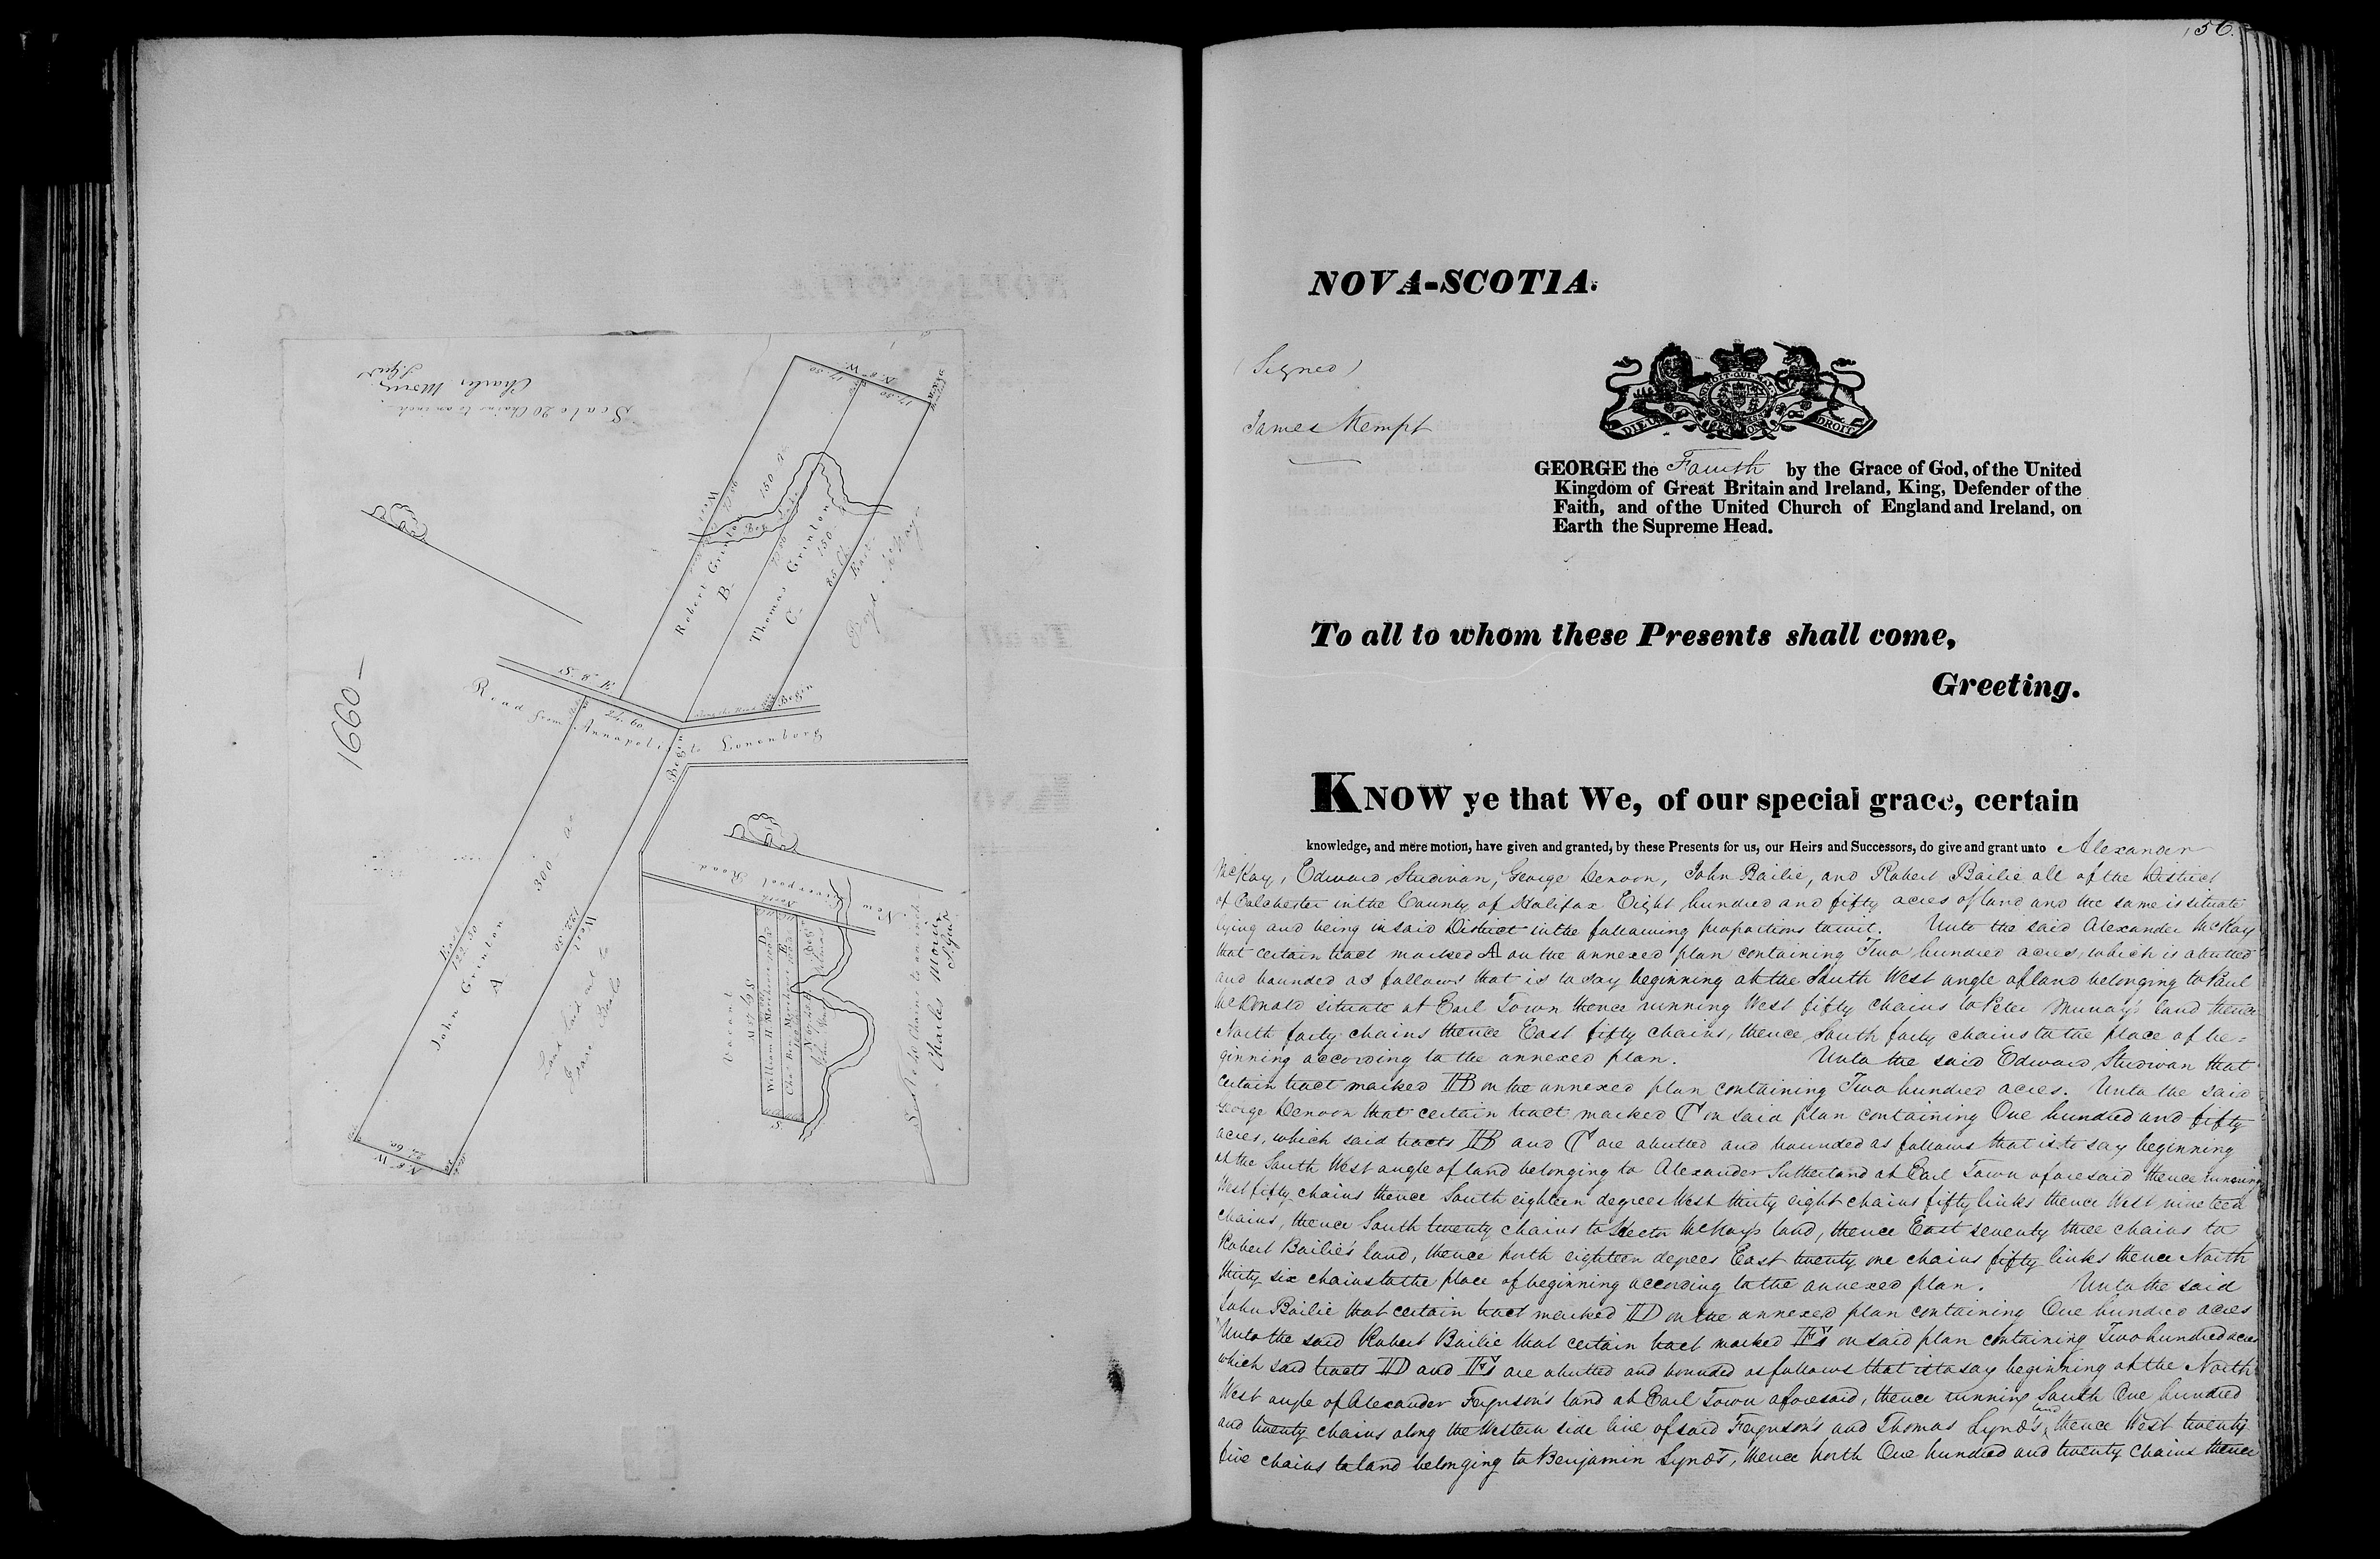 Scale 20 Chains to an inch
Charles Morris
S. Genl
1660 —
N. 8° W.
17.50
17.50
West
150 a
Robert Grinton
B
Bog Lake
Thomas Grinton
C
150
85 Ch
East
Begin
S. 8. E
24.60
Road from Annapolis to Lunenburg
Begin
East
122.50
300 a
John Grinton
A
West
122.50
Land laid out to
N. 8° W
24.60
New Liverpool Road
North
Vacant
William H. Morehouse
D
E
S
Scale 40 Chains to an inch
Charles Morris
156.
NOVA-SCOTIA.
(Signed)
James Kempt
DIEU ET MON DROIT
GEORGE the Fourth by the Grace of God, of the United
Kingdom of Great Britain and Ireland, King, Defender of the
Faith, and of the United Church of England and Ireland, on
Earth the Supreme Head.
To all to whom these Presents shall come,
Greeting.
KNOW ye that We, of our special grace, certain
knowledge, and mere motion, have given and granted, by these Presents for us, our Heirs and Successors, do give and grant unto Alexander
McKay, Edward Studivan, George Denoon, John Bailie, and Robert Bailie all of the District
of Colchester in the County of Halifax Eight hundred and fifty acres of land and the same is situate
lying and being in said District in the following proportions to wit. Unto the said Alexander McKay
that certain tract marked A on the annexed plan containing Two hundred acres, which is abutted
and bounded as follows that is to say beginning at the South West angle of land belonging to Paul
McDonald situate at Earl Town thence running West fifty chains to Peter Murray's land thence
North forty chains thence East fifty chains, thence South forty chains to the place of be=
ginning according to the annexed plan. Unto the said Edward Studivan that
certain tract marked B on the annexed plan containing Two hundred acres. Unto the said
George Denoon that certain tract marked C on said plan containing One hundred and fifty
acres, which said tracts B and C are abutted and bounded as follows that is to say beginning
at the South West angle of land belonging to Alexander Sutherland at Earl Town aforesaid thence running
West fifty chains thence South eighteen degrees West thirty eight chains fifty links thence West nineteen
chains, thence South twenty chains to Hector McKay's land, thence East seventy three chains to
Robert Bailie's land, thence north eighteen degrees East twenty one chains fifty links thence North
thirty six chains to the place of beginning according to the annexed plan. Unto the said
John Bailie that certain tract marked D on the annexed plan containing One hundred acres
Unto the said Robert Bailie that certain tract marked E on said plan containing Two hundred acres
which said tracts D and E are abutted and bounded as follows that is to say beginning at the North
West angle of Alexander Ferguson's land at Earl Town aforesaid, thence running South One hundred
and twenty chains along the Western side line of said Ferguson's and Thomas Lynd's land thence West twenty
five chains to land belonging to Benjamin Lynds, thence north One hundred and twenty chains thence